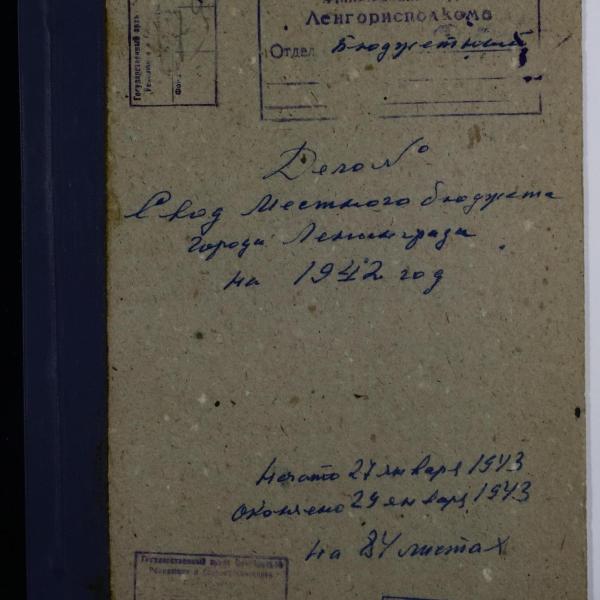 Ленгорисполкома
Отдел Бюджетный
Дело №
Свод Местного бюджета
города Ленинграда
на 1942 год
Начато 27 января 1943
Окончено 29 января 1943
на 84 листах
Государственный архив Октябрьской
Революции и
Государственный архив
Революции и